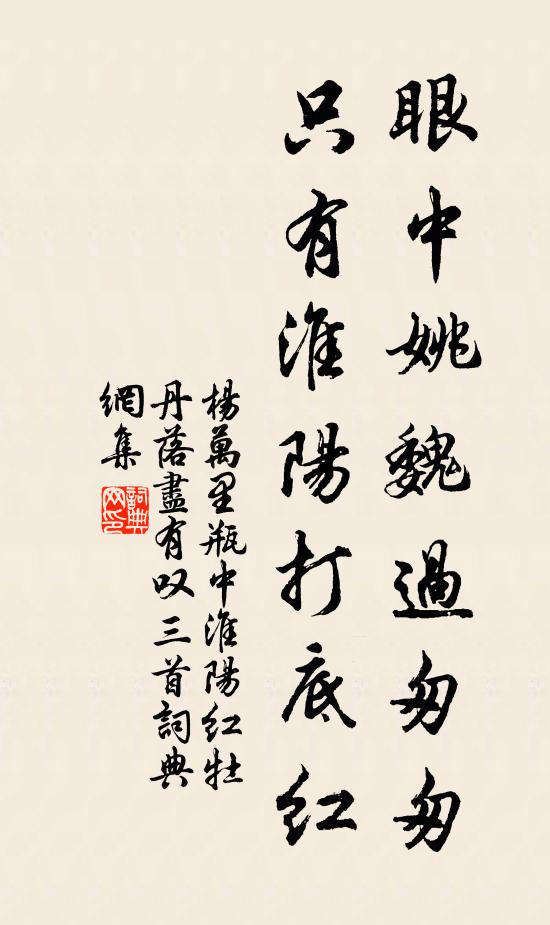 眼中姚魏過匆匆
只有淮陽打底紅
楊萬里瓶中淮陽红牡
丹落盡有叹三首詞典
網集
詞典网印